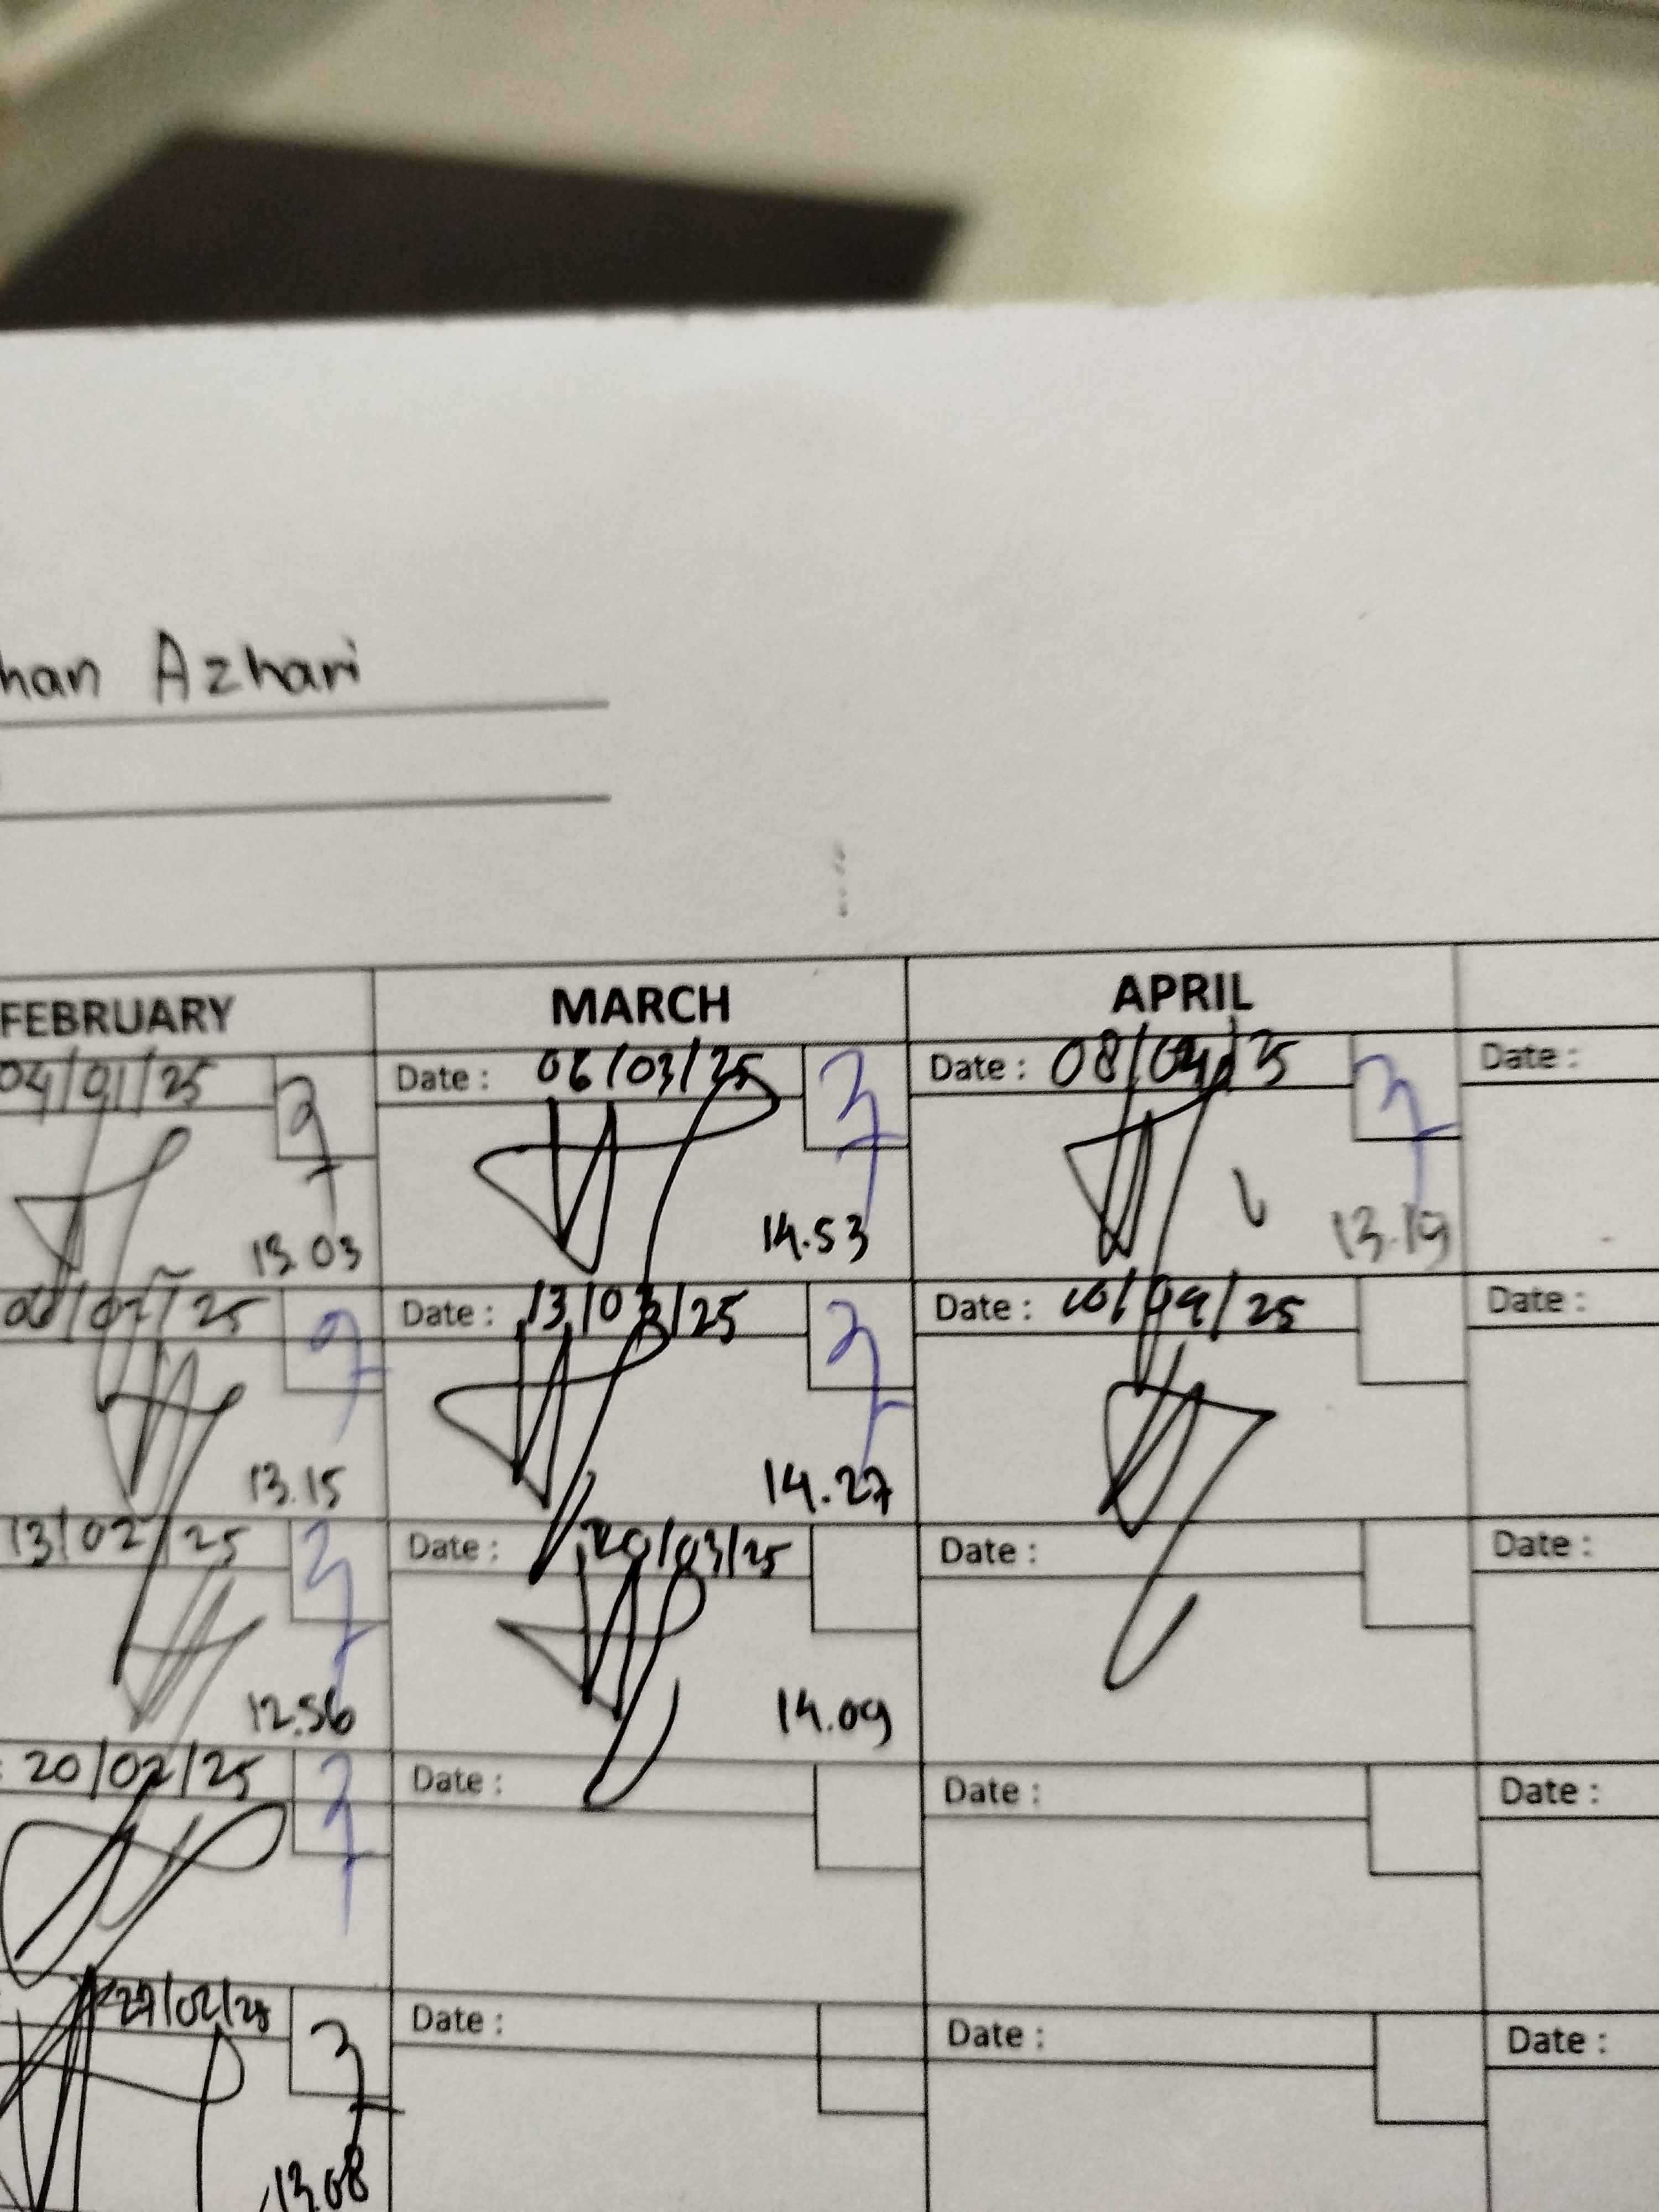 han Azhari
FEBRUARY MARCH APRIL
04/01/25 Date : 06/03/25 Date : 08/04/25 Date :
13.03 14.53 13.19
06/02/25 Date : 13/03/25 Date : 10/04/25 Date :
13.15 14.27
13/02/25 Date : 20/03/25 Date : Date :
12.56 14.09
: 20/02/25 Date : Date : Date :
27/02/25 Date : Date : Date :
13.08